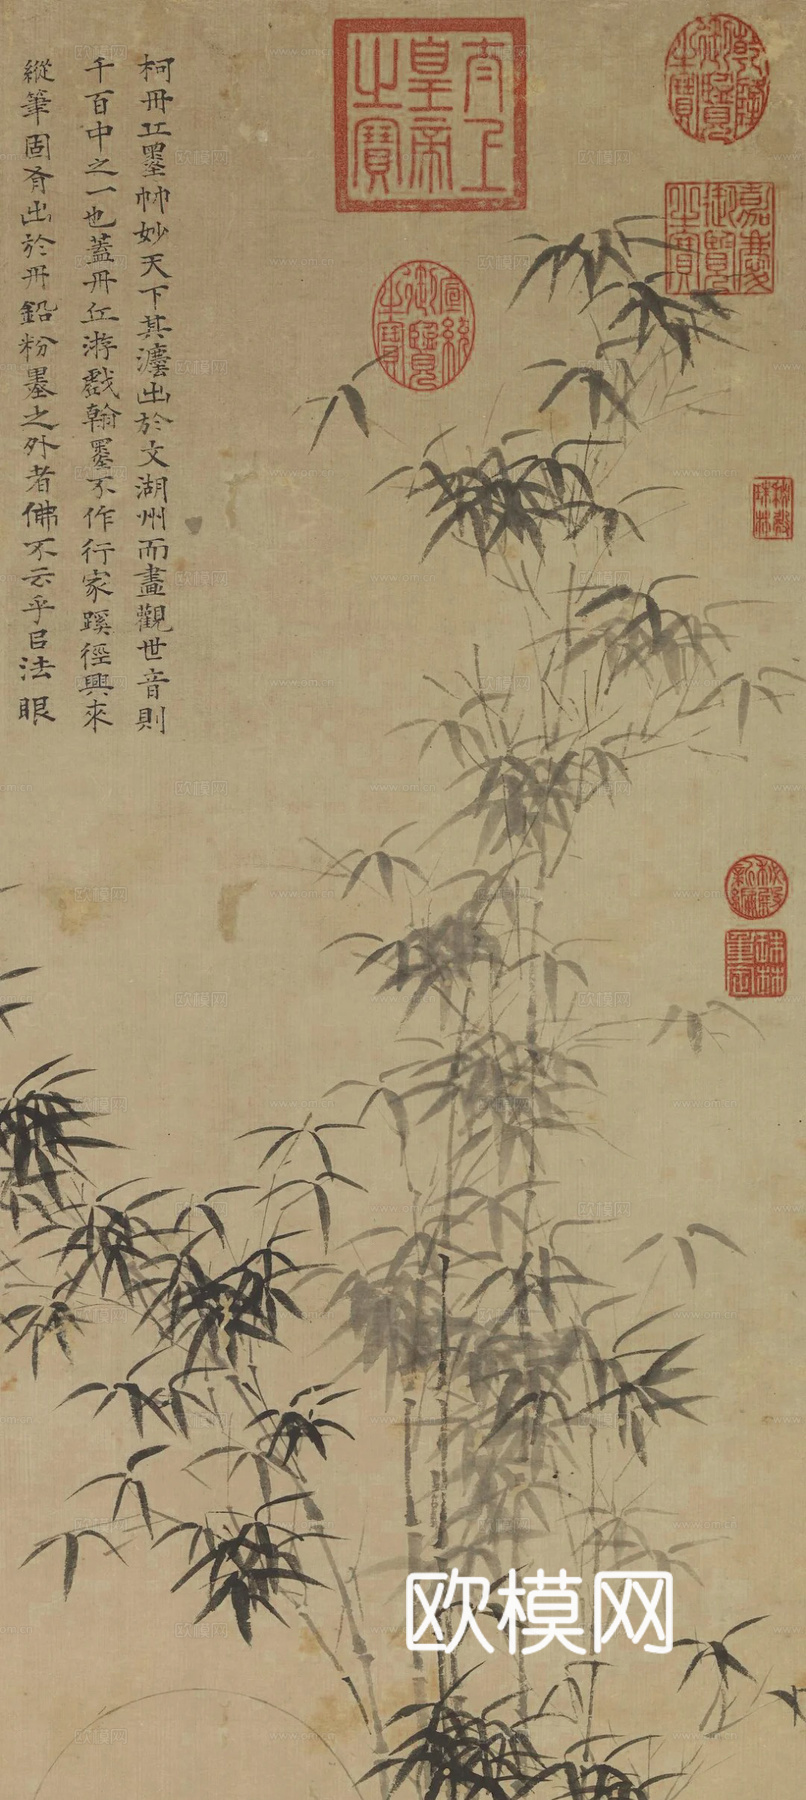 柯丹丘墨竹妙天下其灋出於文湖州而畫觀世音則
千百中之一也蓋丹丘游戲翰墨不作行家蹊徑興來
縱筆固有出於丹鉛粉墨之外者佛不云乎以法眼
太上皇帝之寶
乾隆御覽之寶
嘉慶御覽之寶
宣統御覽之寶
秘殿珠林
秘殿新編
珠林重定
欧模网
www.om.cn